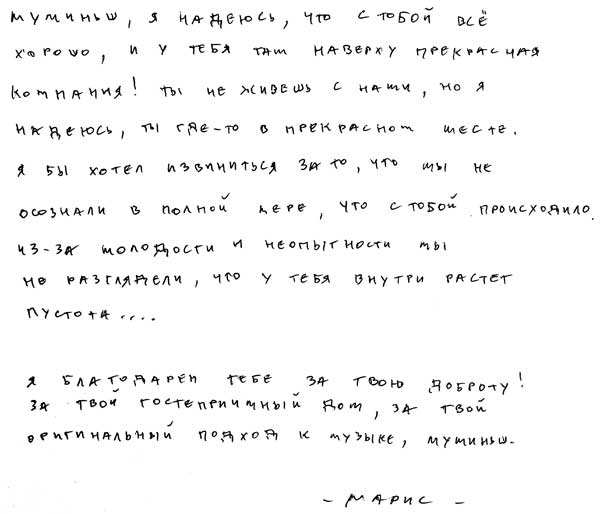 муминьш, я надеюсь, что с тобой всё
хорошо, и у тебя там наверху прекрасная
компания! ты не живешь с нами, но я
надеюсь, ты где-то в прекрасном месте.
я бы хотел извиниться за то, что мы не
осознали в полной мере, что с тобой происходило.
из-за молодости и неопытности мы
не разглядели, что у тебя внутри растет
пустота....
я благодарен тебе за твою доброту!
за твой гостеприимный дом, за твой
оригинальный подход к музыке, муминьш.
- марис -